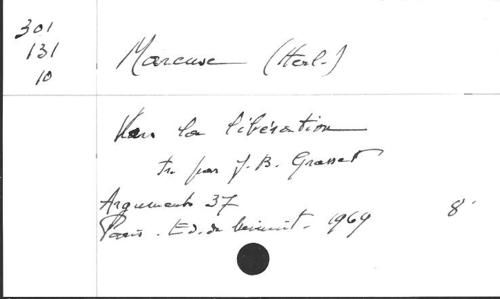 301
131
10
Marcuse (Herb.)
Vers la libération
tr. par J. B. Grasset
Arguments 37
Paris. Ed. de Minuit. 1969 8°